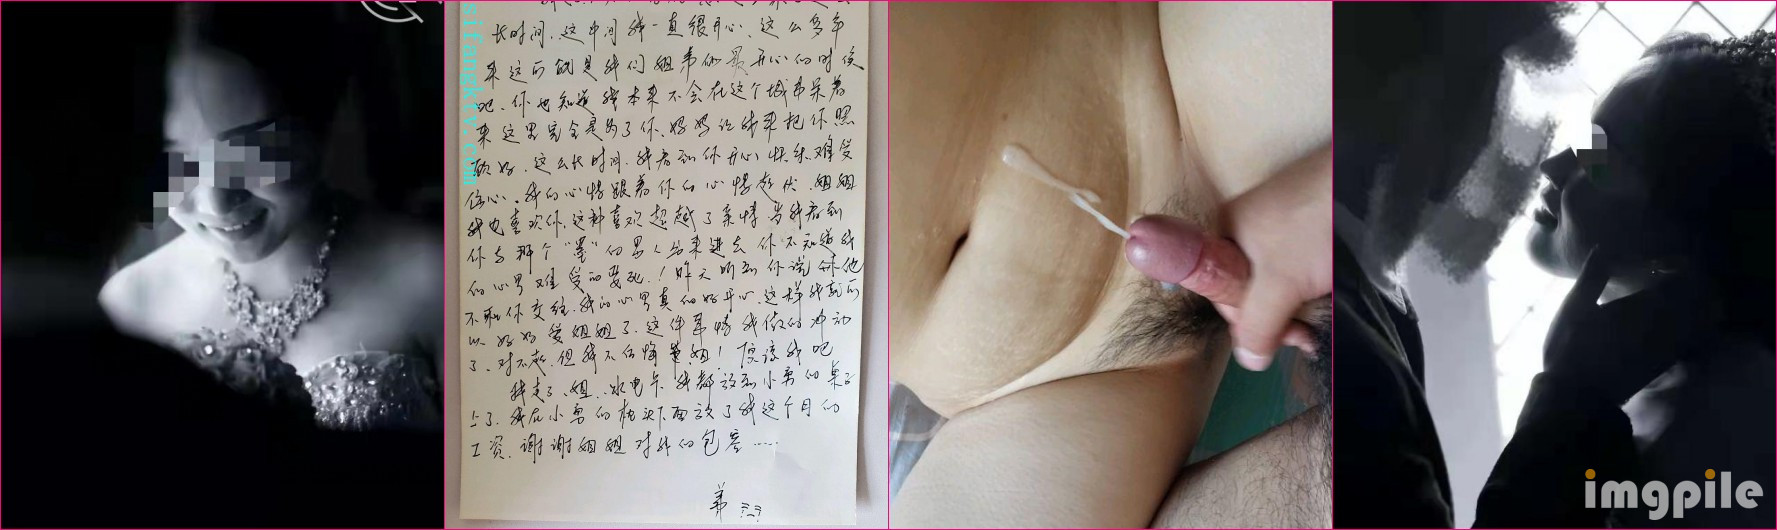 长时间.这中间我一直很开心.这么多年
来这可能是我们姐弟俩最开心的时候
吧.你也知道我本来不会在这个城市呆着
来这里完全是为了你.妈妈让我来把你照
顾好.这么长时间.我看到你开心快乐难受
伤心.我的心情跟着你的心情起伏.姐姐
我也喜欢你.这种喜欢超越了亲情.当我看到
你与那个"黑"的男人出来进去你不知道我
的心里难受的要死!昨天听到你说他
不和你交往.我的心里真的好开心.这样我就可
以好好爱姐姐了.这件事情我做的冲动
了.对不起.但我不后悔姐!原谅我吧
我走了.姐.水电卡我都放到小勇的桌子
上了.我在小勇的枕头下面放了我这个月的
工资.谢谢姐姐对我的包容……
弟
sifangktv.com
imgpile